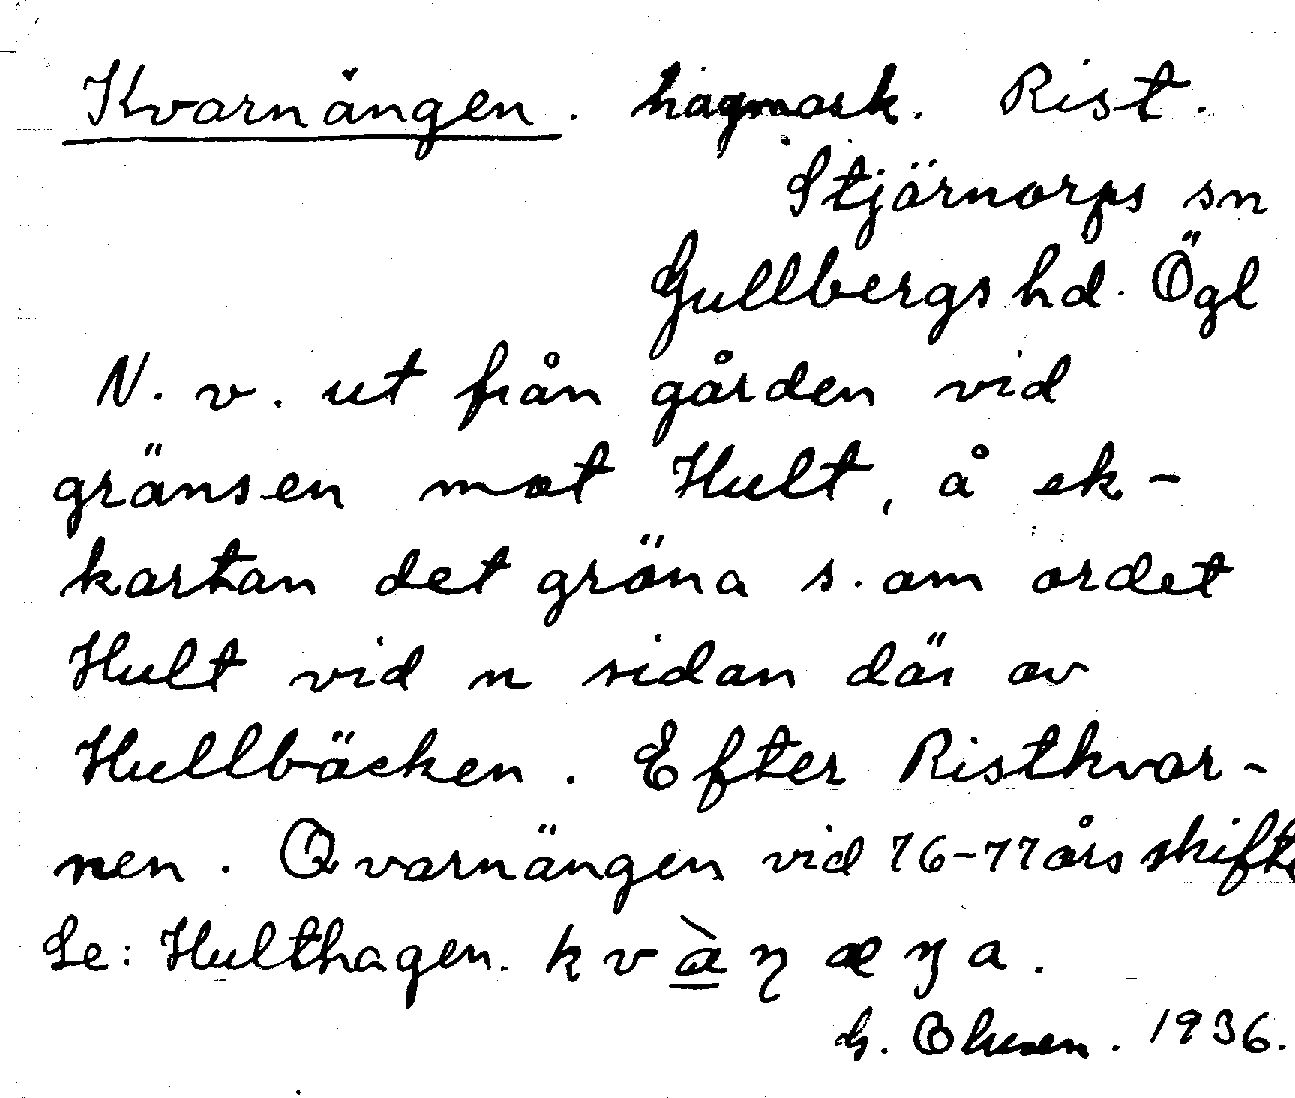 Kvarnängen. hagmark. Rist.
Stjärnorps sn
Gullbergs hd. Ögl
N. v. ut från gården vid
gränsen mot Hult, å ek-
kartan det gröna s. om ordet
Hult vid n sidan där av
Hullbäcken. Efter Ristkvar-
nen. Qvarnängen vid 76-77 års skifte
Se: Hulthagen. kvàɳæŋa.
G. Olsson. 1936.